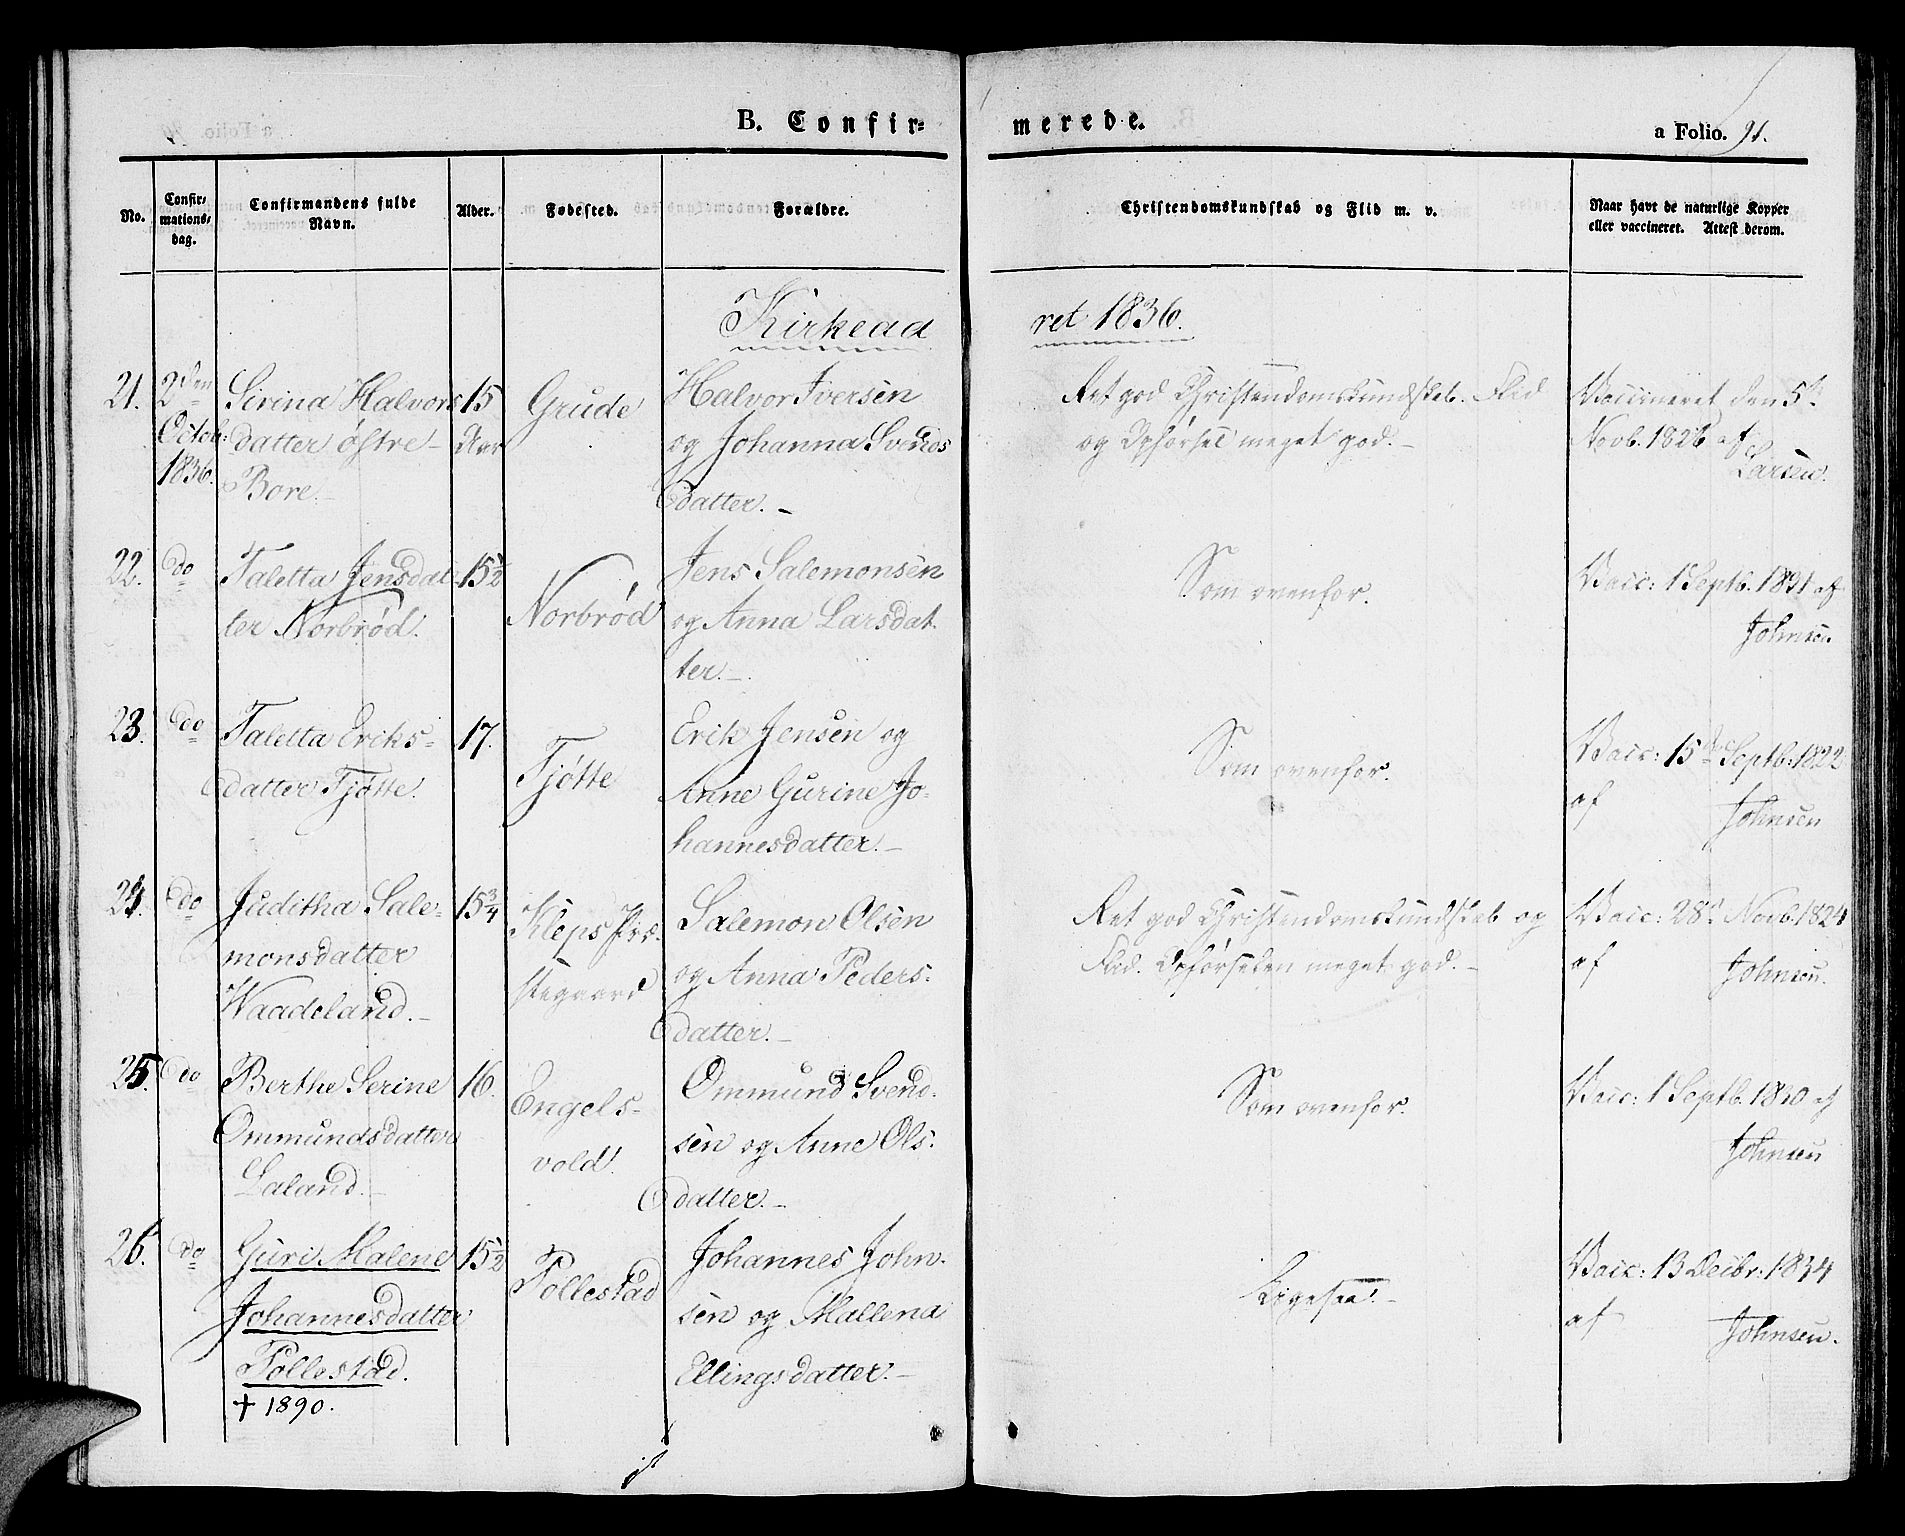 B. Confir=
merede.
a Folio. 91.
No.
Confir=
mations=
dag.
Confirmandens fulde
Navn.
Alder.
Fødested.
Forældre.
Christendomskundskab og Flid m. v.
Naar havt de naturlige Kopper
eller vaccineret. Attest derom.
Kirkeaa
ret 1836.
21.
2den
Octob:
1836.
Sirina Halvors
datter østre
Bore.
15
Aar
Grude
Halvor Iversen
og Johanna Svends
datter.
Ret god Christendomskundskab. Flid
og Opførsel meget god.
Vaccineret den 5t
Novb. 1826 af
Larsen.
22.
do
Taletta Jensdat
ter Norbrød.
15½
Norbrød
Jens Salemonsen
og Anna Larsdat
ter.
Som ovenfor.
Vacc: 1 Septb. 1831 af
Johnsen
23.
do
Taletta Eriks=
datter Tjøtte.
17.
Tjøtte
Erik Jensen og
Anne Gurine Jo=
hannesdatter.
Som ovenfor.
Vacc: 15de Septb: 1822
af Johnsen
24.
do
Juditha Sale=
monsdatter
Waadeland.
15¾
Kleps Præ=
stegaard
Salemon Olsen
og Anna Peders=
datter.
Ret god Christendomskundskab og
Flid. Opførselen meget god.
Vacc: 28d Novb. 1824
af Johnsen.
25.
do
Berthe Serine
Ommundsdatter
Laland.
16.
Engels=
vold.
Ommund Svend=
sen og Anne Ols=
datter.
Som ovenfor.
Vacc: 1 Septb. af
Johnsen
26.
do
Guri Malene
Johannesdatter
Pollestad.
† 1890.
15½
Pollestad
Johannes John=
sen og Mallena
Ellingsdatter.
Ligesaa.
Vacc: 13 Decbr: 1834
af Johnsen.